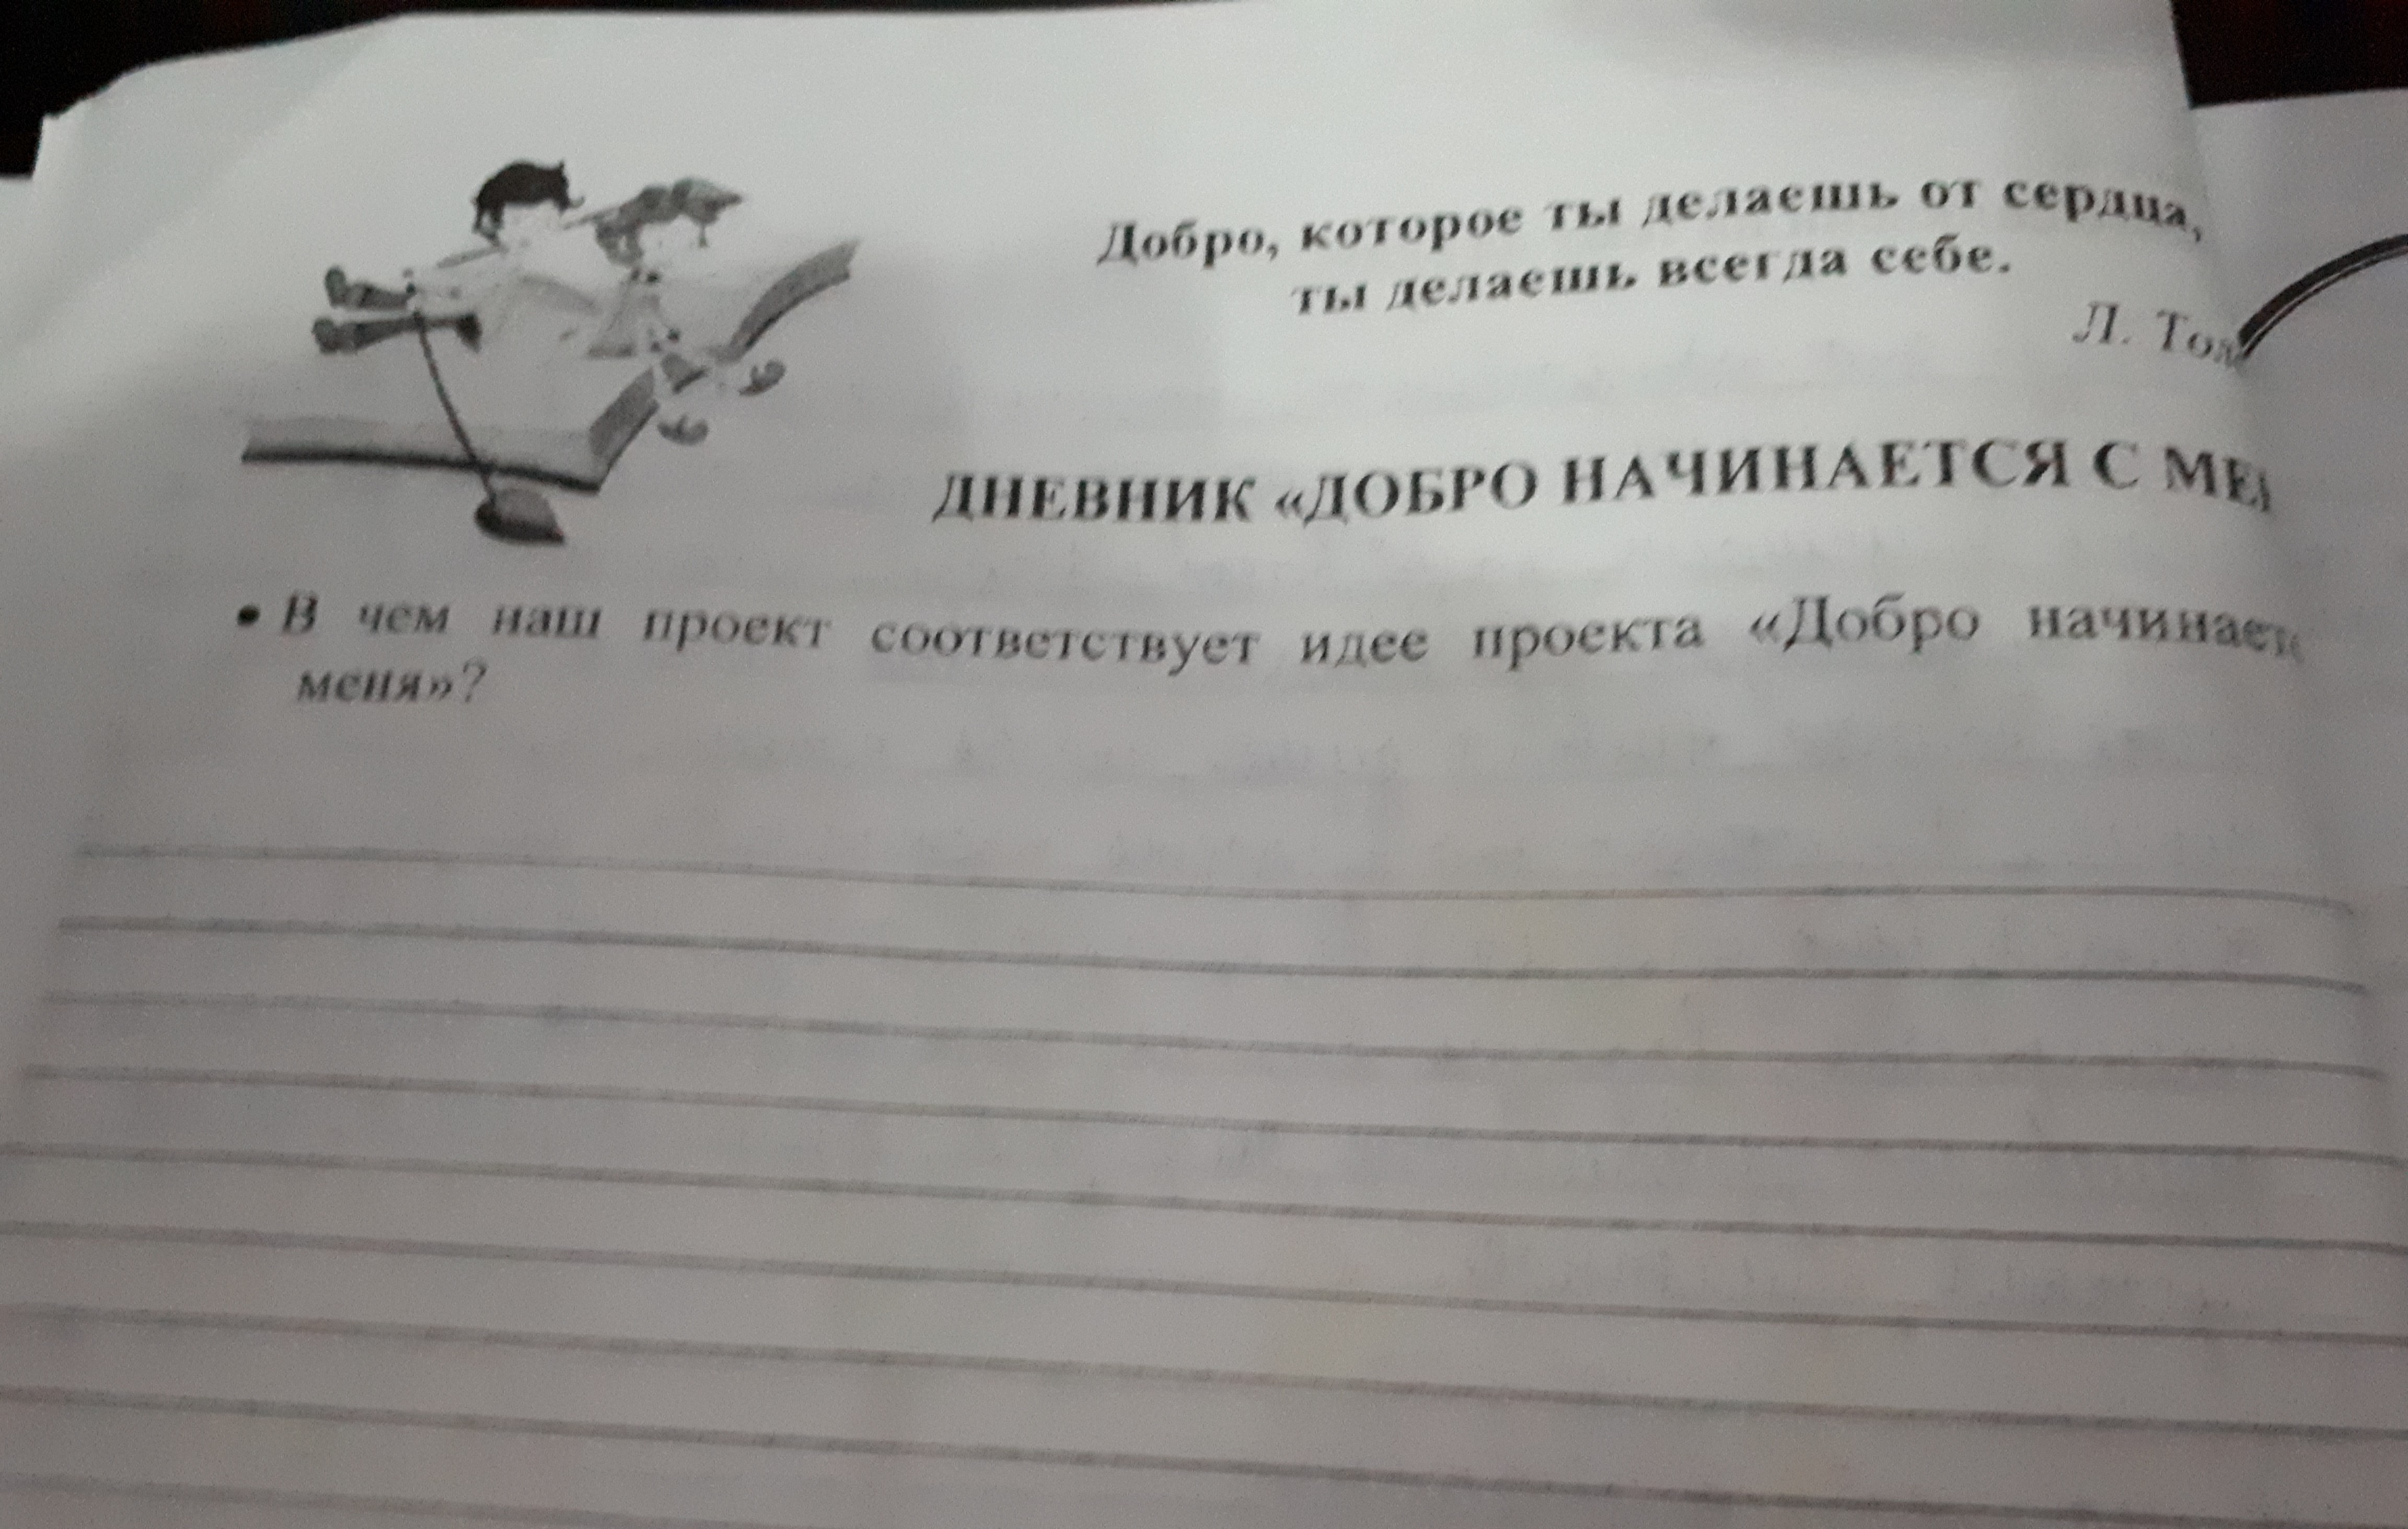 Добро, которое ты делаешь от сердца,
ты делаешь всегда себе.
Л.
ДНЕВНИК «ДОБРО НАЧИНАЕТСЯ С
• В чем наш проект соответствует идее проекта «Добро
меня»?